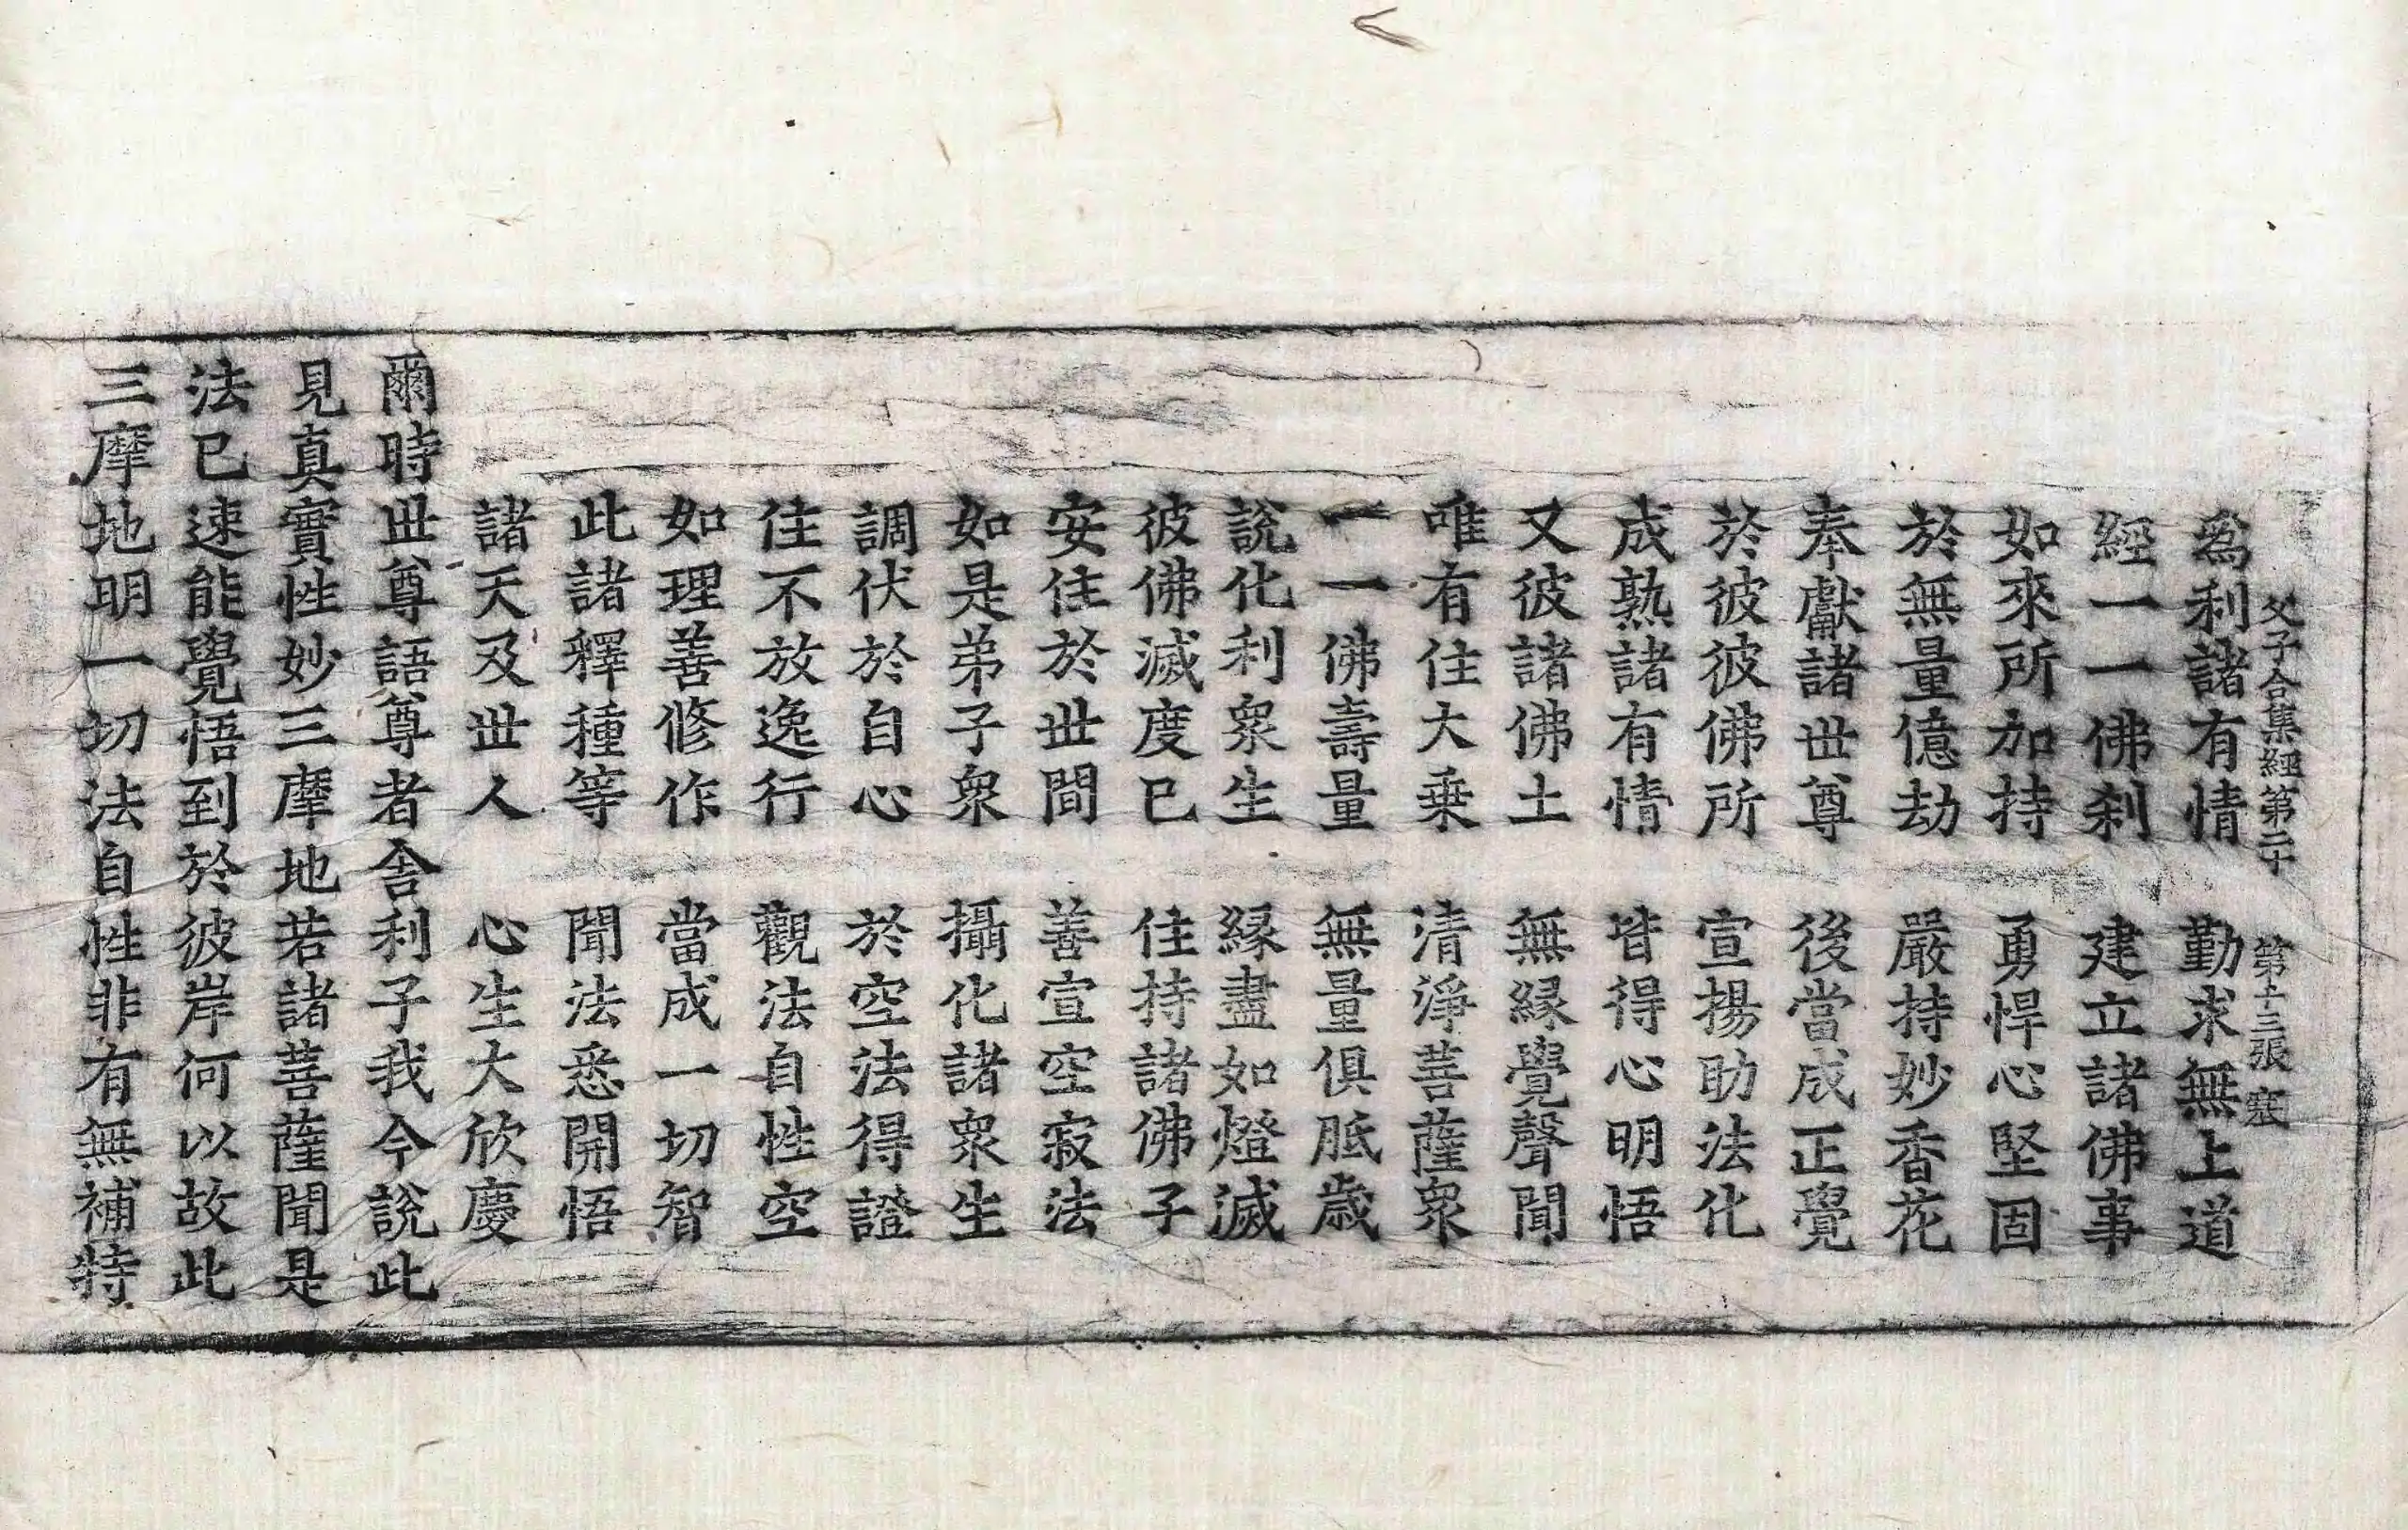 父子合集經第二十 第十三張 塞
爲利諸有情 勤求無上道
經一一佛刹 建立諸佛事
如來所加持 勇悍心堅固
於無量億劫 嚴持妙香花
奉獻諸世尊 後當成正覺
於彼彼佛所 宣揚助法化
成熟諸有情 皆得心明悟
又彼諸佛土 無緣覺聲聞
唯有住大乗 清淨菩薩衆
一一佛壽量 無量俱胝歲
說化利衆生 緣盡如燈滅
彼佛滅度已 住持諸佛子
安住於世間 善宣空寂法
如是弟子衆 攝化諸衆生
調伏於自心 於空法得證
住不放逸行 觀法自性空
如理善修作 當成一切智
此諸釋種等 聞法悉開悟
諸天及世人 心生大欣慶
爾時世尊語尊者舍利子我今說此
見真實性妙三摩地若諸菩薩聞是
法已速能覺悟到於彼岸何以故此
三摩地明一切法自性非有無補特